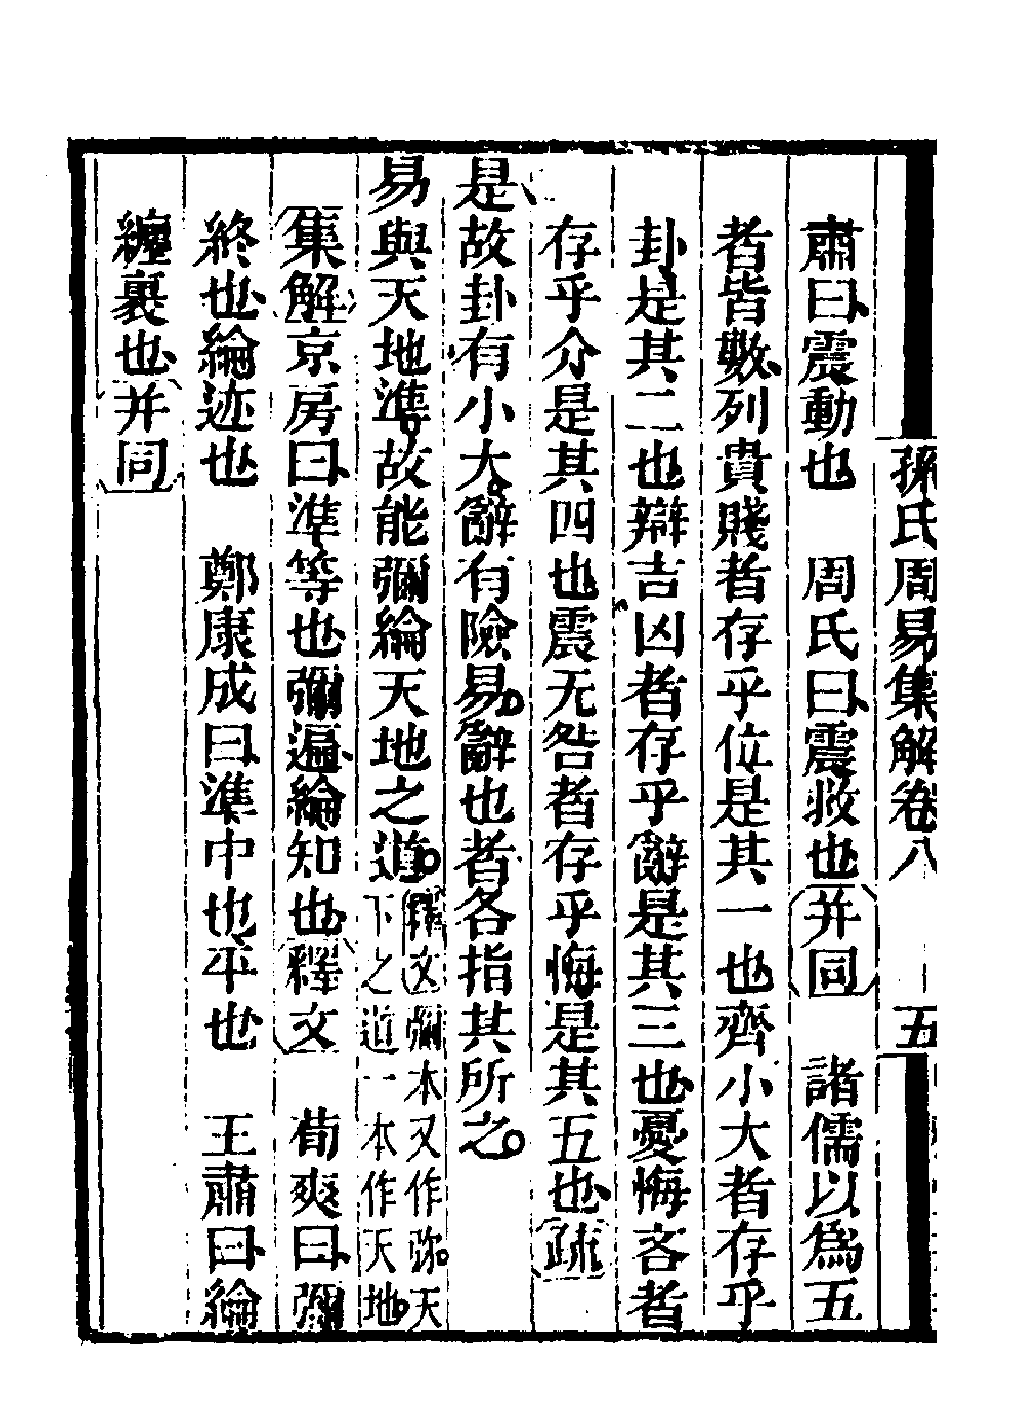 孫氏周易集解卷八
五
肅曰震動也　周氏曰震救也并同　諸儒以為五
者皆數列貴賤者存乎位是其一也齊小大者存乎
卦是其二也辯吉凶者存乎辭是其三也憂悔吝者
存乎介是其四也震无咎者存乎悔是其五也疏
是故卦有小大辭有險易辭也者各指其所之
易與天地準故能彌綸天地之道釋文彌本又作弥天
下之道一本作天地
集解京房曰準等也彌遍綸知也釋文　荀爽曰彌
終也綸迹也　鄭康成曰準中也平也　王肅曰綸
纏裹也并同